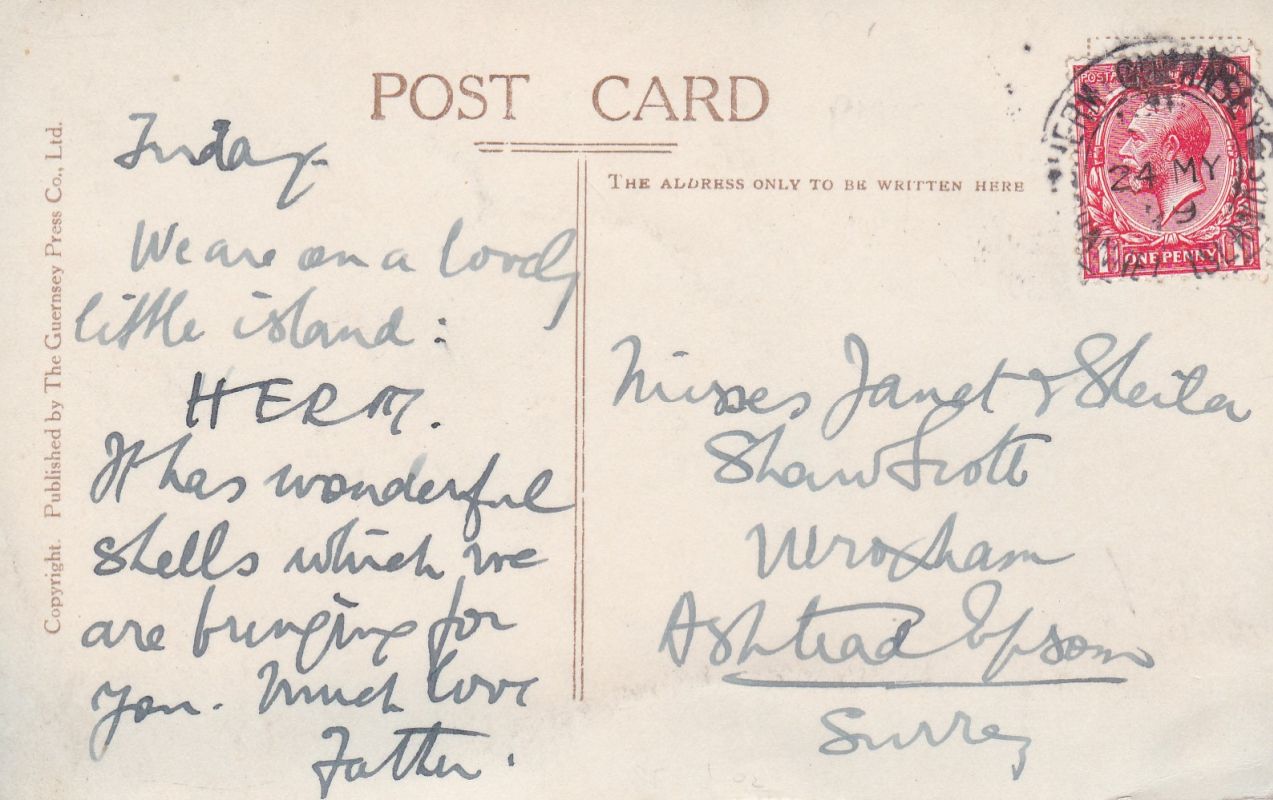 POST CARD
THE ADDRESS ONLY TO BE WRITTEN HERE
Copyright. Published by The Guernsey Press Co., Ltd.
Friday
We are on a lovely
little island:
HERM.
It has wonderful
shells which we
are bringing for
you. Much love
Father.
Misses Janet & Sheila
Shaw Scott
Wroxham
Ashtead Epsom
Surrey
HERM GUERNSEY
24 MY
ONE PENNY